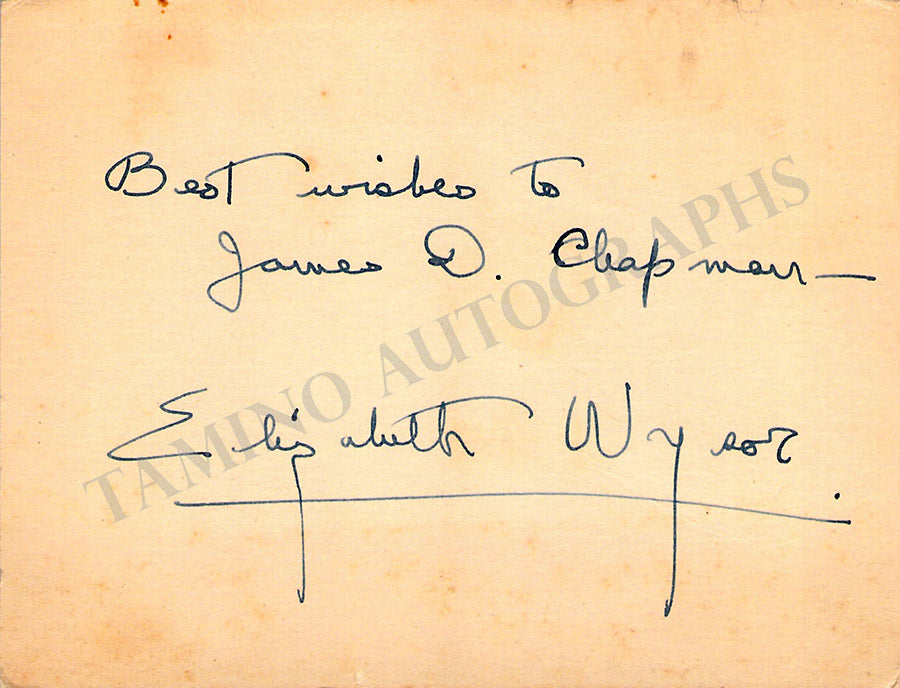 Best wishes to
James D. Chapman—
Elizabeth Wysor
TAMINO AUTOGRAPHS